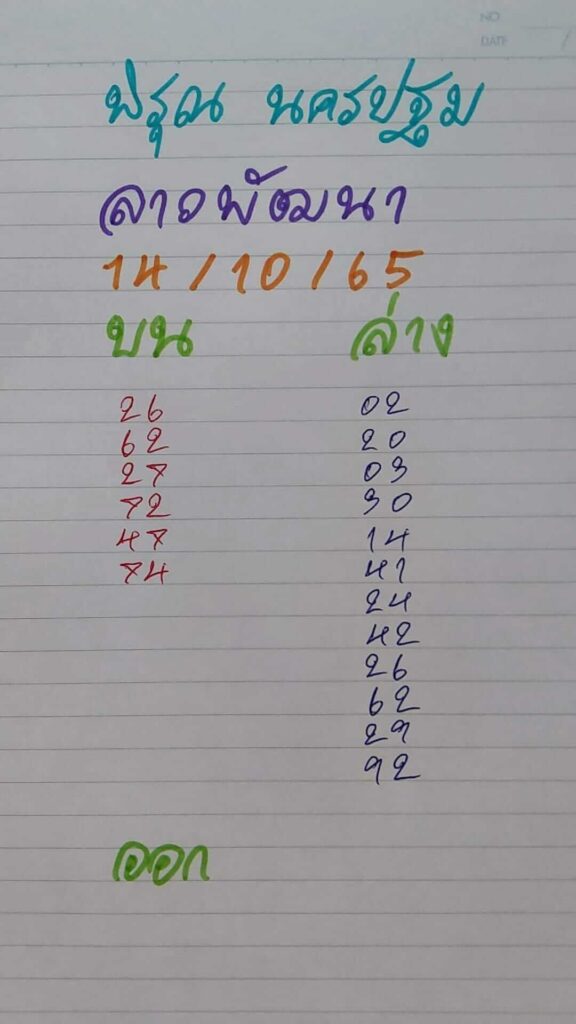 NO.
DATE
พิรุณ นครปฐม
ลาวพัฒนา
14/10/65
บน ล่าง
26 02
62 20
27 03
72 30
47 14
74 41
24
42
26
62
29
92
ออก